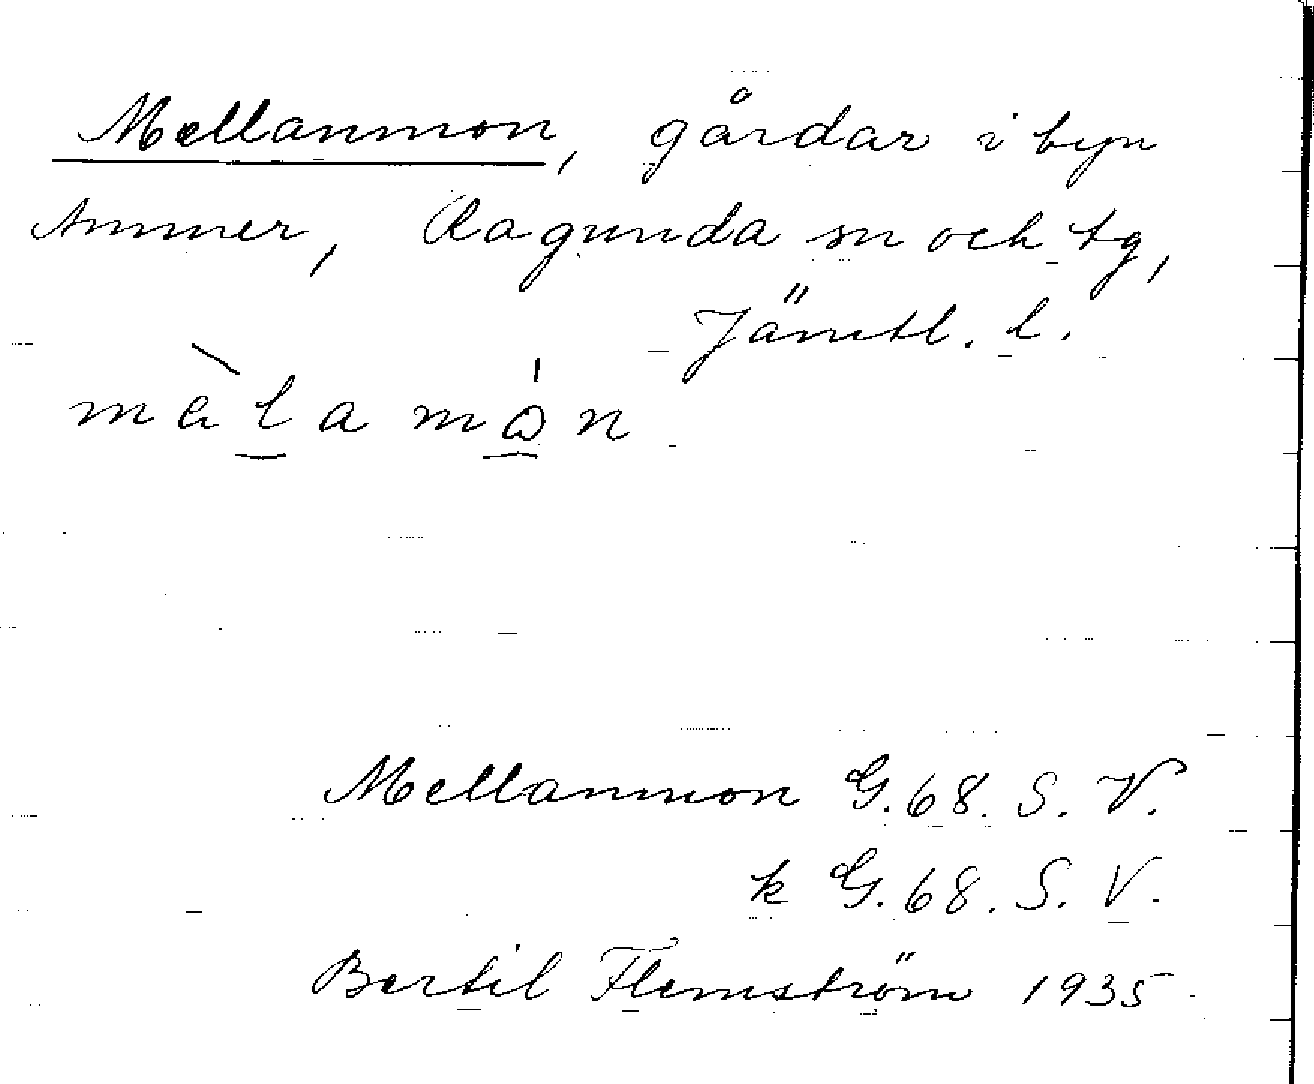 Mellanmon, gårdar i byn
Ammer, Ragunda sn och tg,
Jämtl. l.
mèlamón
Mellanmon G. 68. S. V.
k G. 68. S. V.
Bertil Flemström 1935